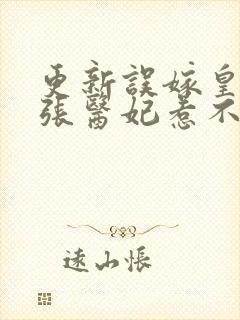 更新誤嫁皇
張醫妃惹不
遠山悵